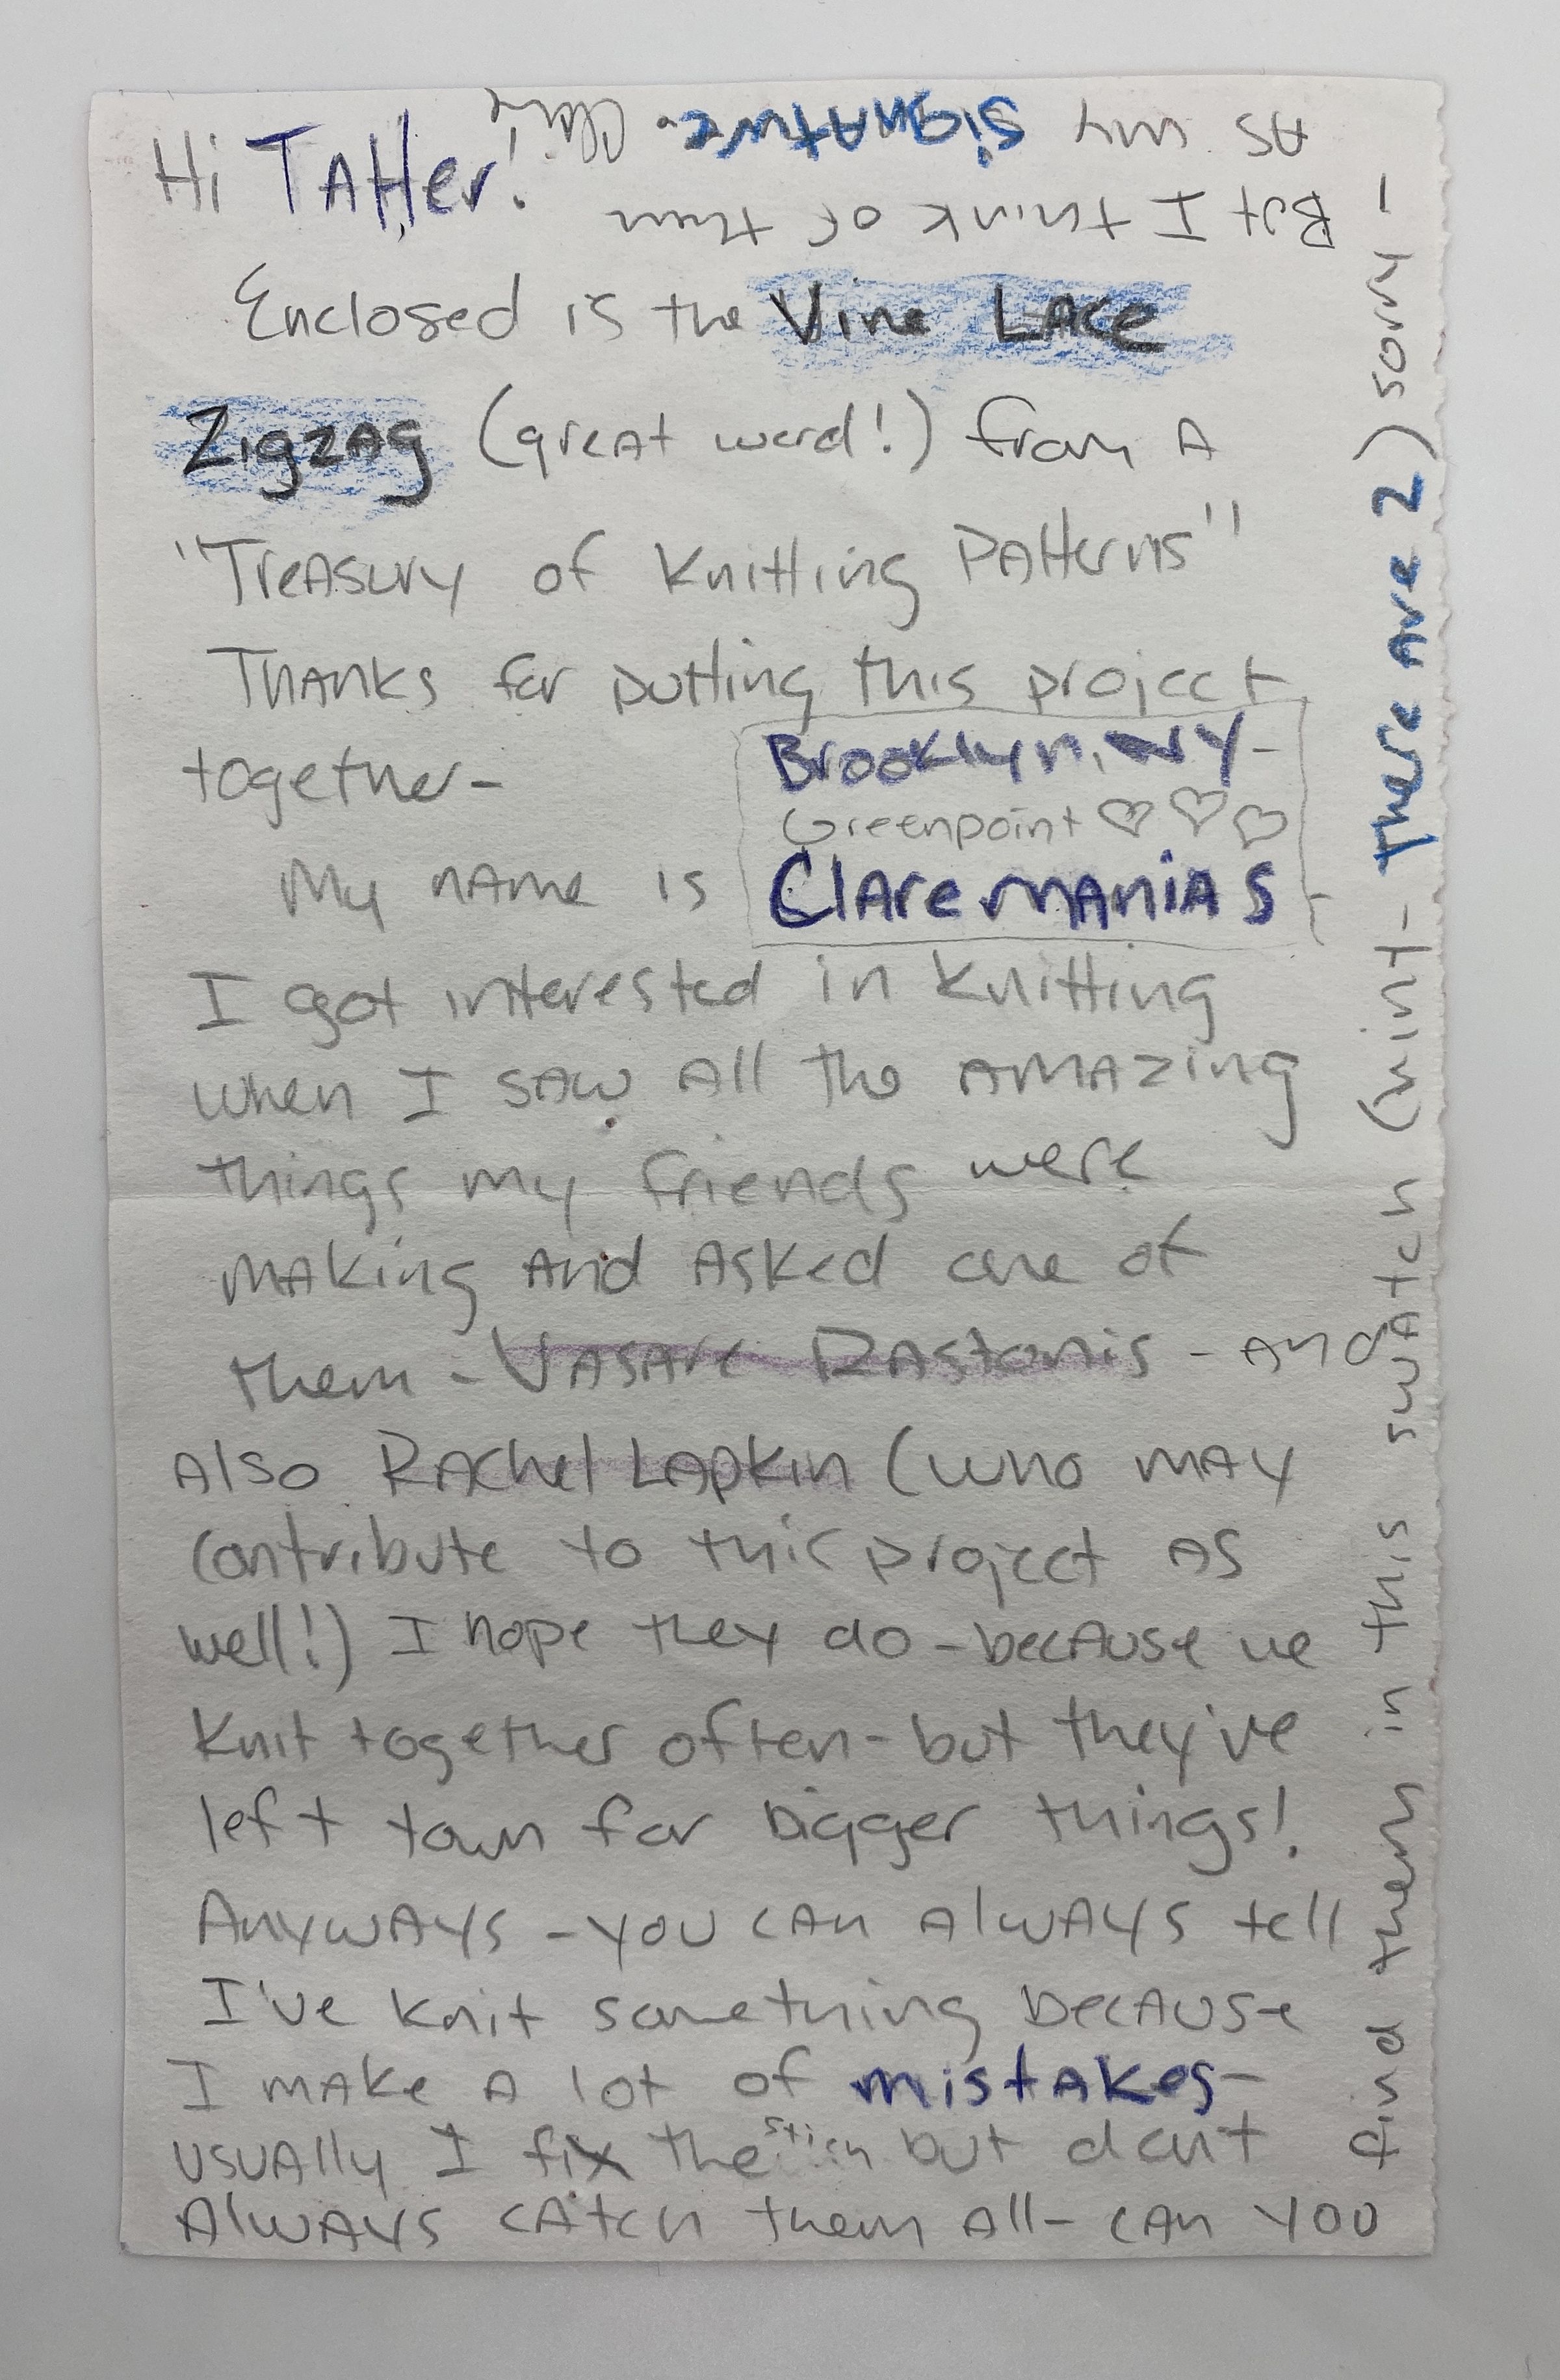 Hi TAtter!
Enclosed is the Vine LAce
ZigzAg (great word!) from A
"TreAsury of Knitting PAtterns"
ThAnks for putting this project
together-
Brooklyn, NY-
Greenpoint ♡♡♡
My nAme is ClAre mAniAs-
I got interested in knitting
when I sAw All the AmAzing
things my friends were
mAking And Asked one of
them - VASAre RAstonis - And
Also RAchel LApkin (who mAy
contribute to this project As
well!) I hope they do - becAuse we
knit together often - but they've
left town for bigger things!
AnywAys - you cAn AlwAys tell
I've knit something becAuse
I mAke A lot of mistAkes-
usuAlly I fix the stich but don't
AlwAys cAtch them All - cAn you
find them in this swAtch (hint - There Are 2) sorry -
But I think of them
As my signAture - Clare